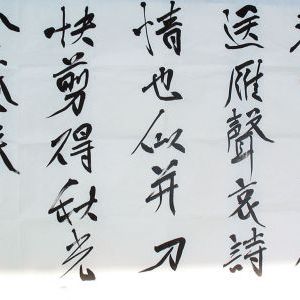 送雁聲哀詩
情也似并刀
快剪得秋光